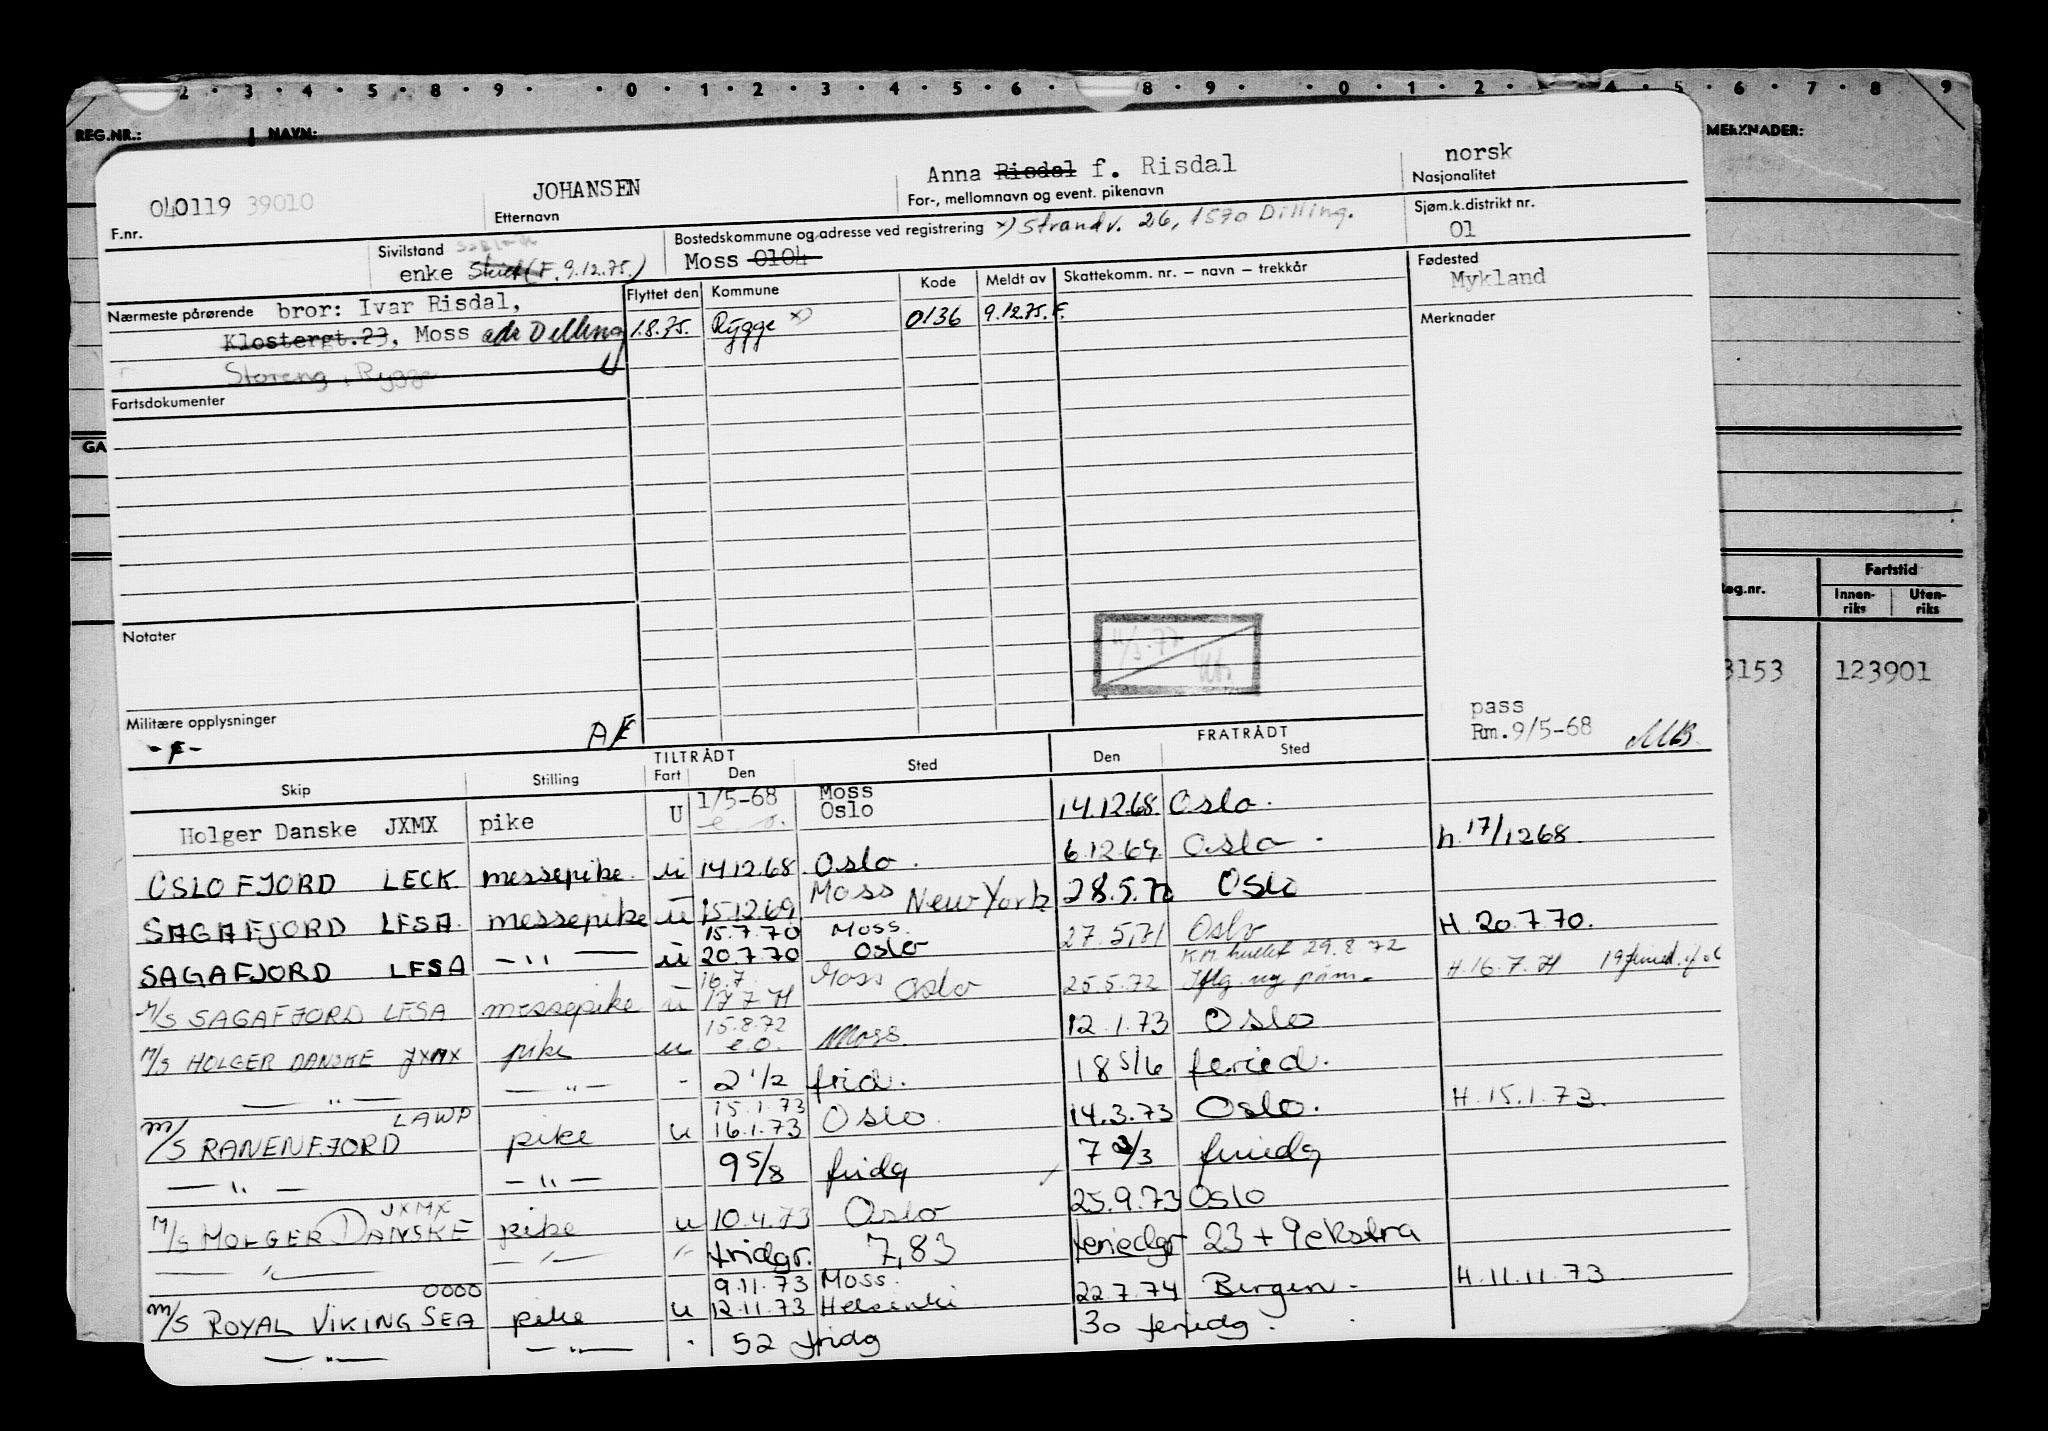 2 · 3 · 4 · 5 · 8 · 9 · · 0 · 1 · 2 · 3 · 4 · 5 · 6 · 8 · 9 · · 0 · 1 · 2 · 4 · 5 · 6 · 7 · 8 9
REG.NR.: NAVN: MERKNADER:
040119 39010 JOHANSEN Anna Risdal f. Risdal norsk
F.nr. Etternavn For-, mellomnavn og event. pikenavn Nasjonalitet
Sivilstand Bostedskommune og adresse ved registrering x) Strandv. 26, 1570 Dilling. Sjøm.k.distrikt nr.
enke (F. 9.12.75.) Moss 0104 01
Nærmeste pårørende bror: Ivar Risdal, Flyttet den Kommune Kode Meldt av Skattekomm. nr. – navn – trekkår Fødested
Mykland
Klostergt.23, Moss adr Dilling 1.8.75. Rygge x) 0136 9.12.75.F. Merknader
Storeng, Rygge
Fartsdokumenter
GA
Fartstid
eg.nr. Innen-riks Uten-riks
Notater 11/3-77
3153 123901
Militære opplysninger
pass
Rm.9/5-68
TILTRÅDT FRATRÅDT
Skip Stilling Fart Den Sted Den Sted
Holger Danske JXMX pike U 1/5-68 e.o. Moss Oslo 14.12.68. Oslo.
OSLOFJORD LECK messepike u 14.12.68 Oslo. 6.12.69. Oslo. h. 17/12 68.
SAGAFJORD LFSA messepike u 15.12.69 Moss New York 28.5.70 Oslo
SAGAFJORD LFSA —"— u 15.7.70 20.7.70 Moss. Oslo 27.5.71 Oslo H. 20.7.70.
M/S SAGAFJORD LFSA messepike u 16.7. 17.7.71 Moss Oslo 25.5.72 29.8.72 H.16.7.71
M/S HOLGER DANSKE JXMX pike u 15.8.72 e.o. Moss. 12.1.73 Oslo
—"— —"— - 2 1/2 frid. 18 5/6 feried.
M/S RANENFJORD LAWP pike u 15.1.73 16.1.73 Oslo. 14.3.73 Oslo. H. 15.1.73.
—"— —"— 9 5/8 fridg 7 2/3 feriedg
M/S HOLGER DANSKE JXMX pike u 10.4.73 Oslo 25.9.73 Oslo
—"— —"— " fridgr. 7,83 feriedgr 23 + 9 ekstra
M/S ROYAL VIKING SEA OOOO pike u 9.11.73 12.11.73 Moss. Helsinki 22.7.74 Bergen. H.11.11.73
—"— —"— 52 fridg 30 feriedg.